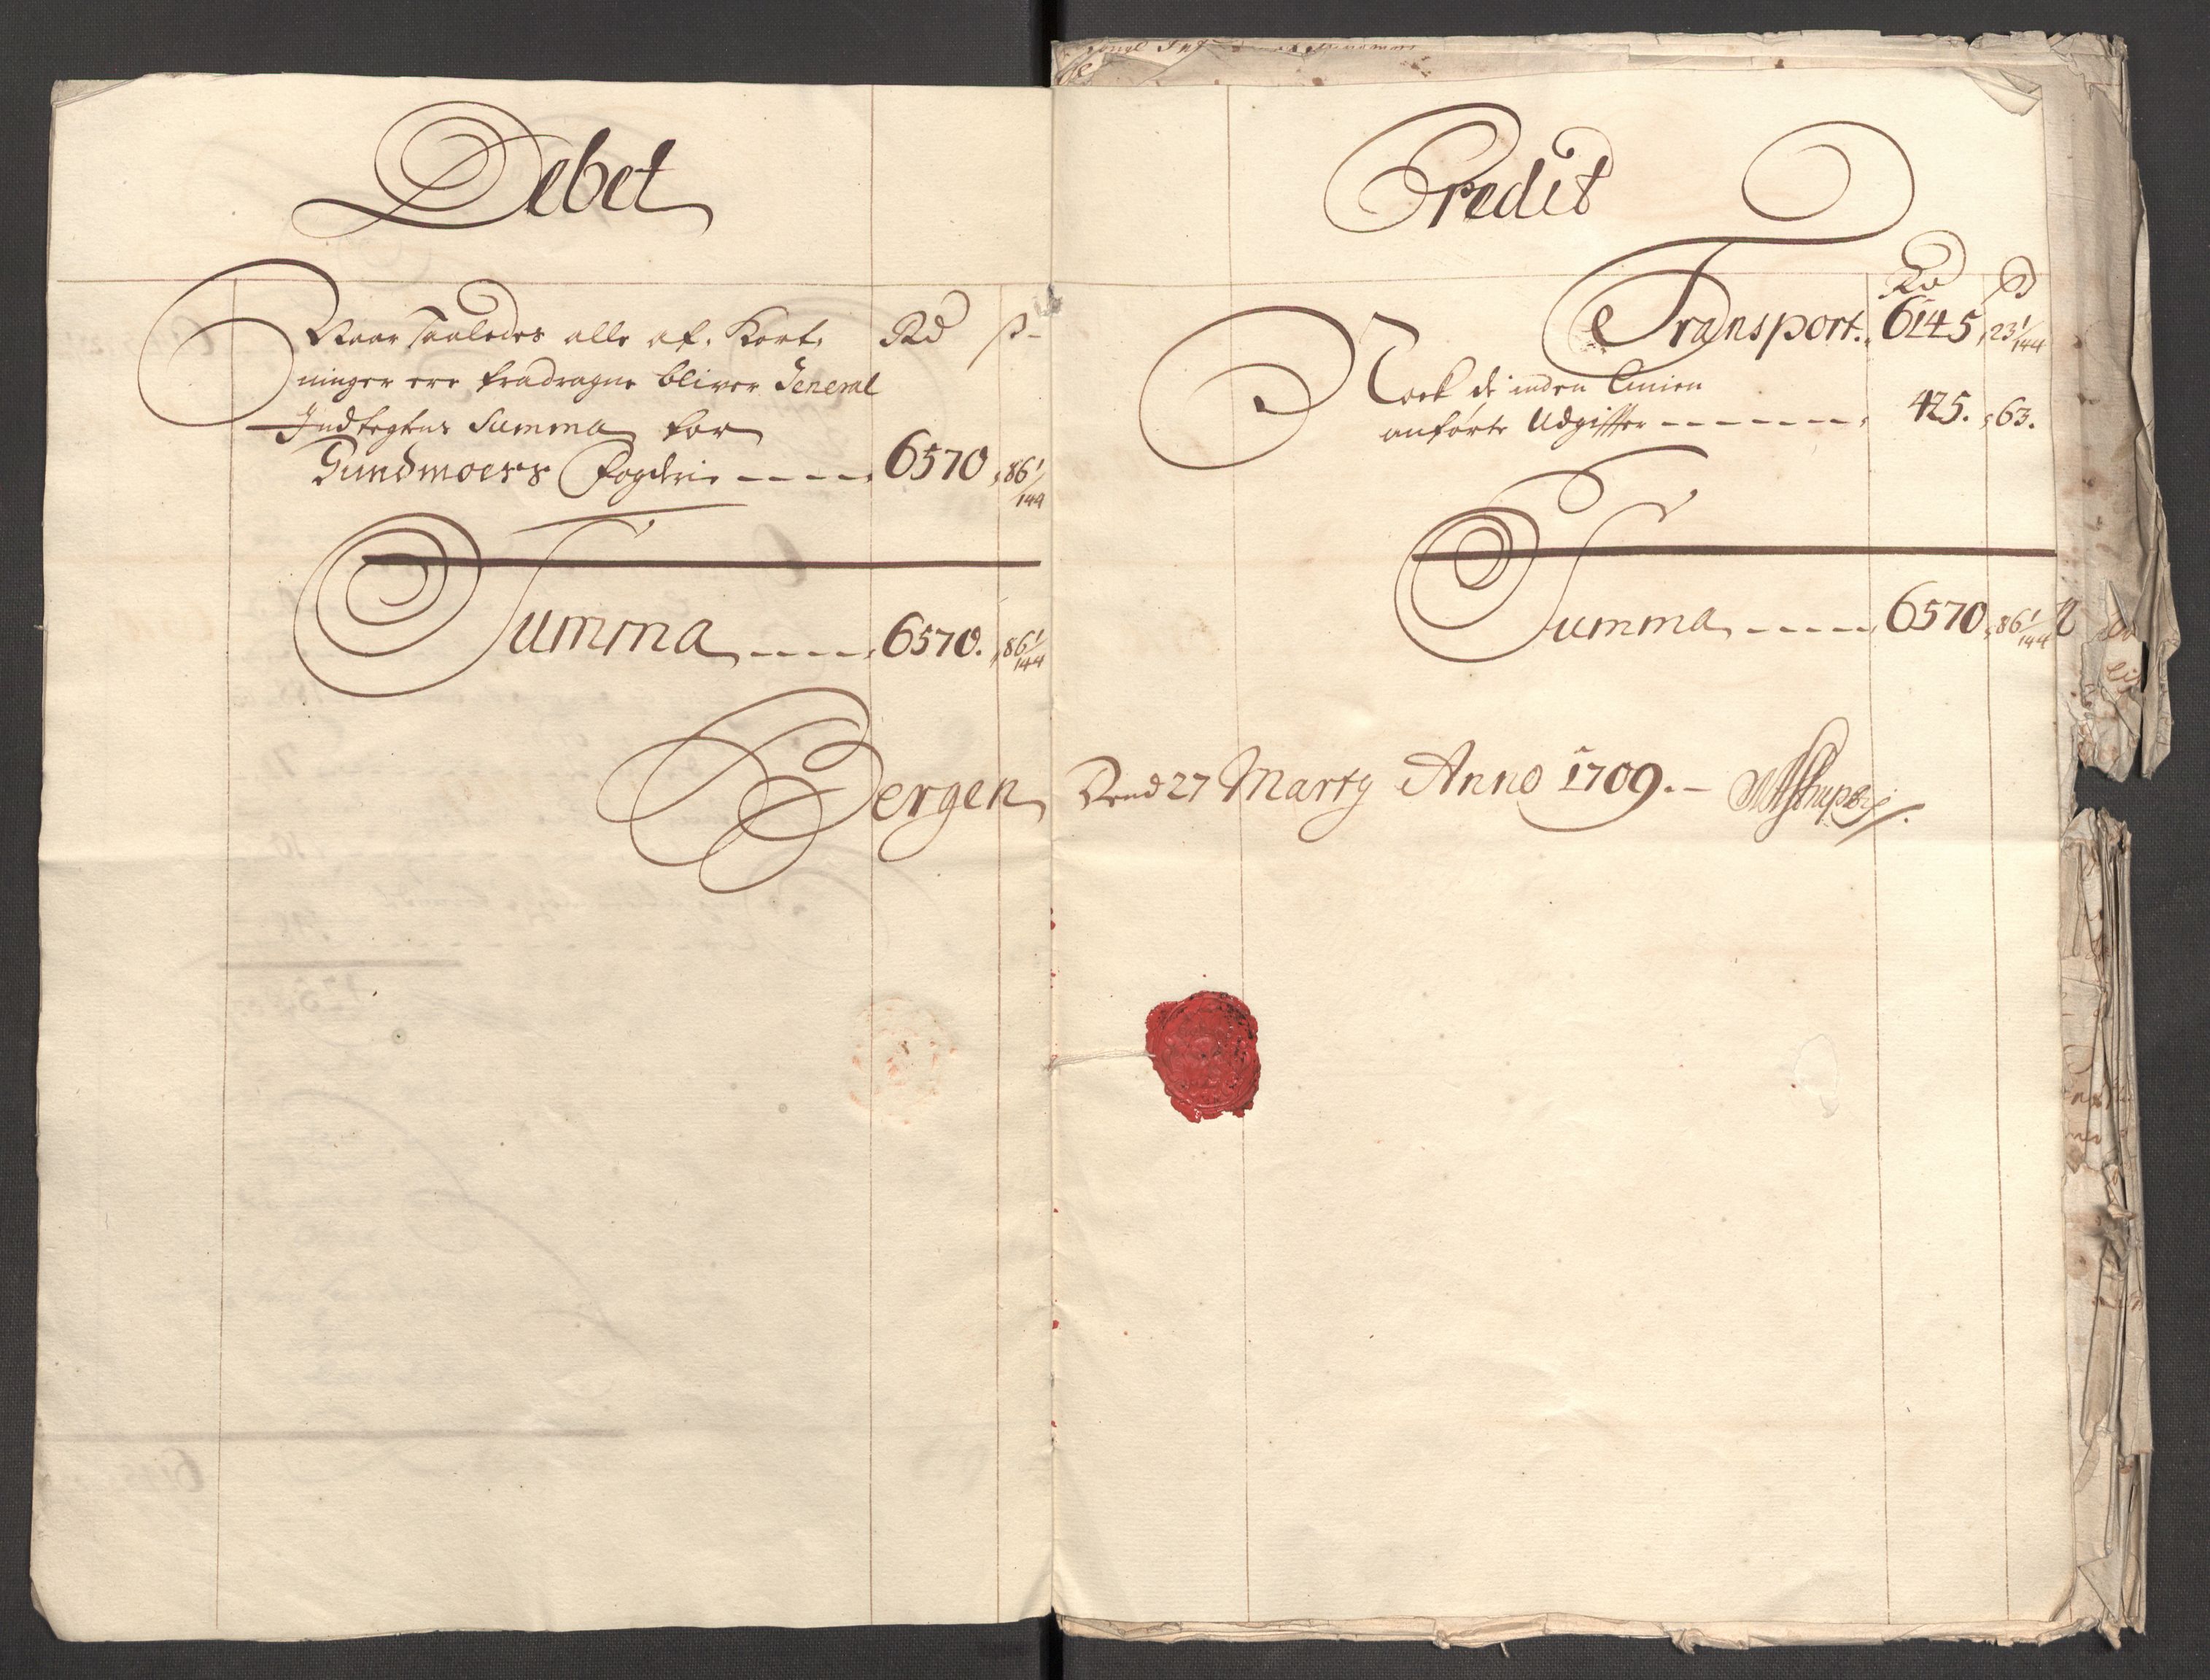 Debet
Naar saaledes alle af. Kort, Rd ß
ninger ere fradragne bliver General
Indtegtens Summa for
Sundmoers Fogderi ----- 6570 , 86 1/144
Summa ----- 6570. , 86 1/144
Bergen
Credit
Rd ß
Transport. 6145 , 23 1/144
Tock de inden Linien
anførte Udgiffter ------- 425. , 63.
Summa ----- 6570 , 86 1/144
Dend 27 Marty Anno 1709.